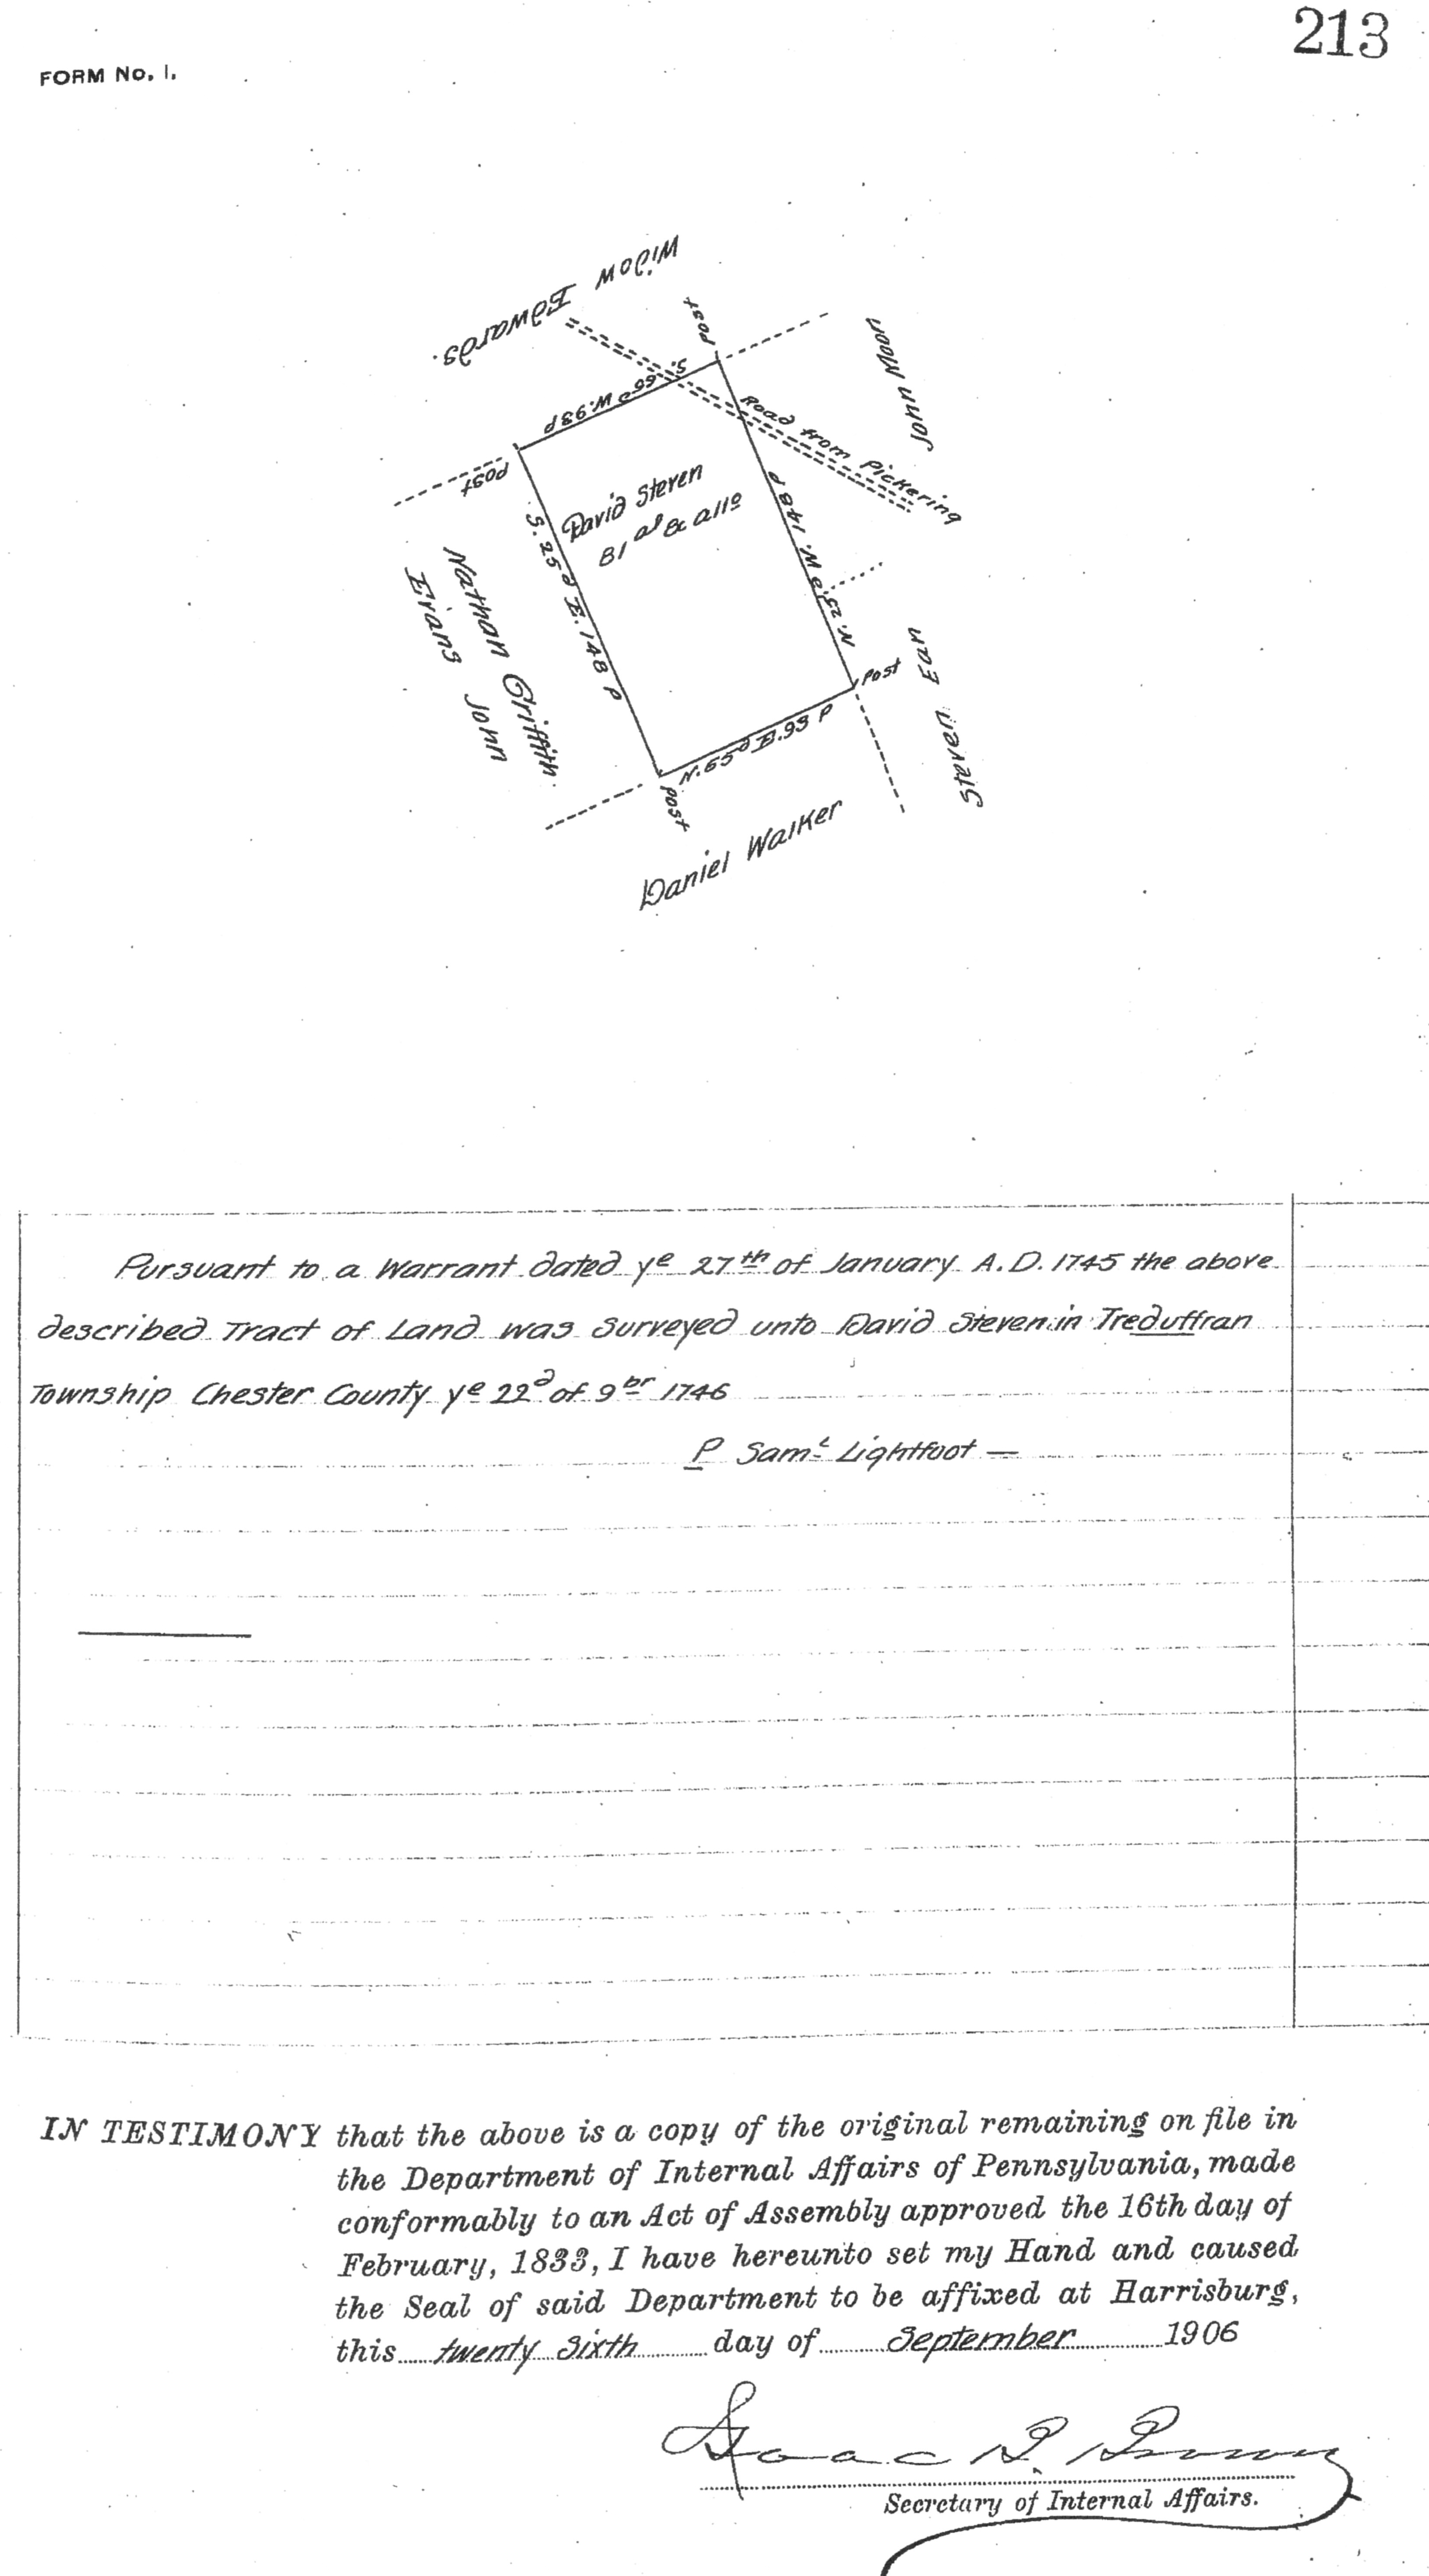 213
FORM No. 1.
Widow Edwards.
Post
John Moon
S. 65º W. 93 P
Road from Pickering
Post
David Steven
81 aˢ & alloˢ
N. 25º W. 148 P
S. 25ᵈ E. 148 P
Nathan Griffith.
Evans John
Post
Steven
N. 65ᵈ E. 93 P
Post
Daniel Walker
Pursuant to a Warrant dated yᵉ 27ᵗʰ of January A. D. 1745 the above
described Tract of Land was Surveyed unto David Steven in Treduffran
Township Chester County yᵉ 22ᵈ of 9ᵇʳ 1746
P Samˡ Lightfoot —
IN TESTIMONY that the above is a copy of the original remaining on file in
the Department of Internal Affairs of Pennsylvania, made
conformably to an Act of Assembly approved the 16th day of
February, 1833, I have hereunto set my Hand and caused
the Seal of said Department to be affixed at Harrisburg,
this twenty Sixth day of September 1906
Isaac B. Brown
Secretary of Internal Affairs.